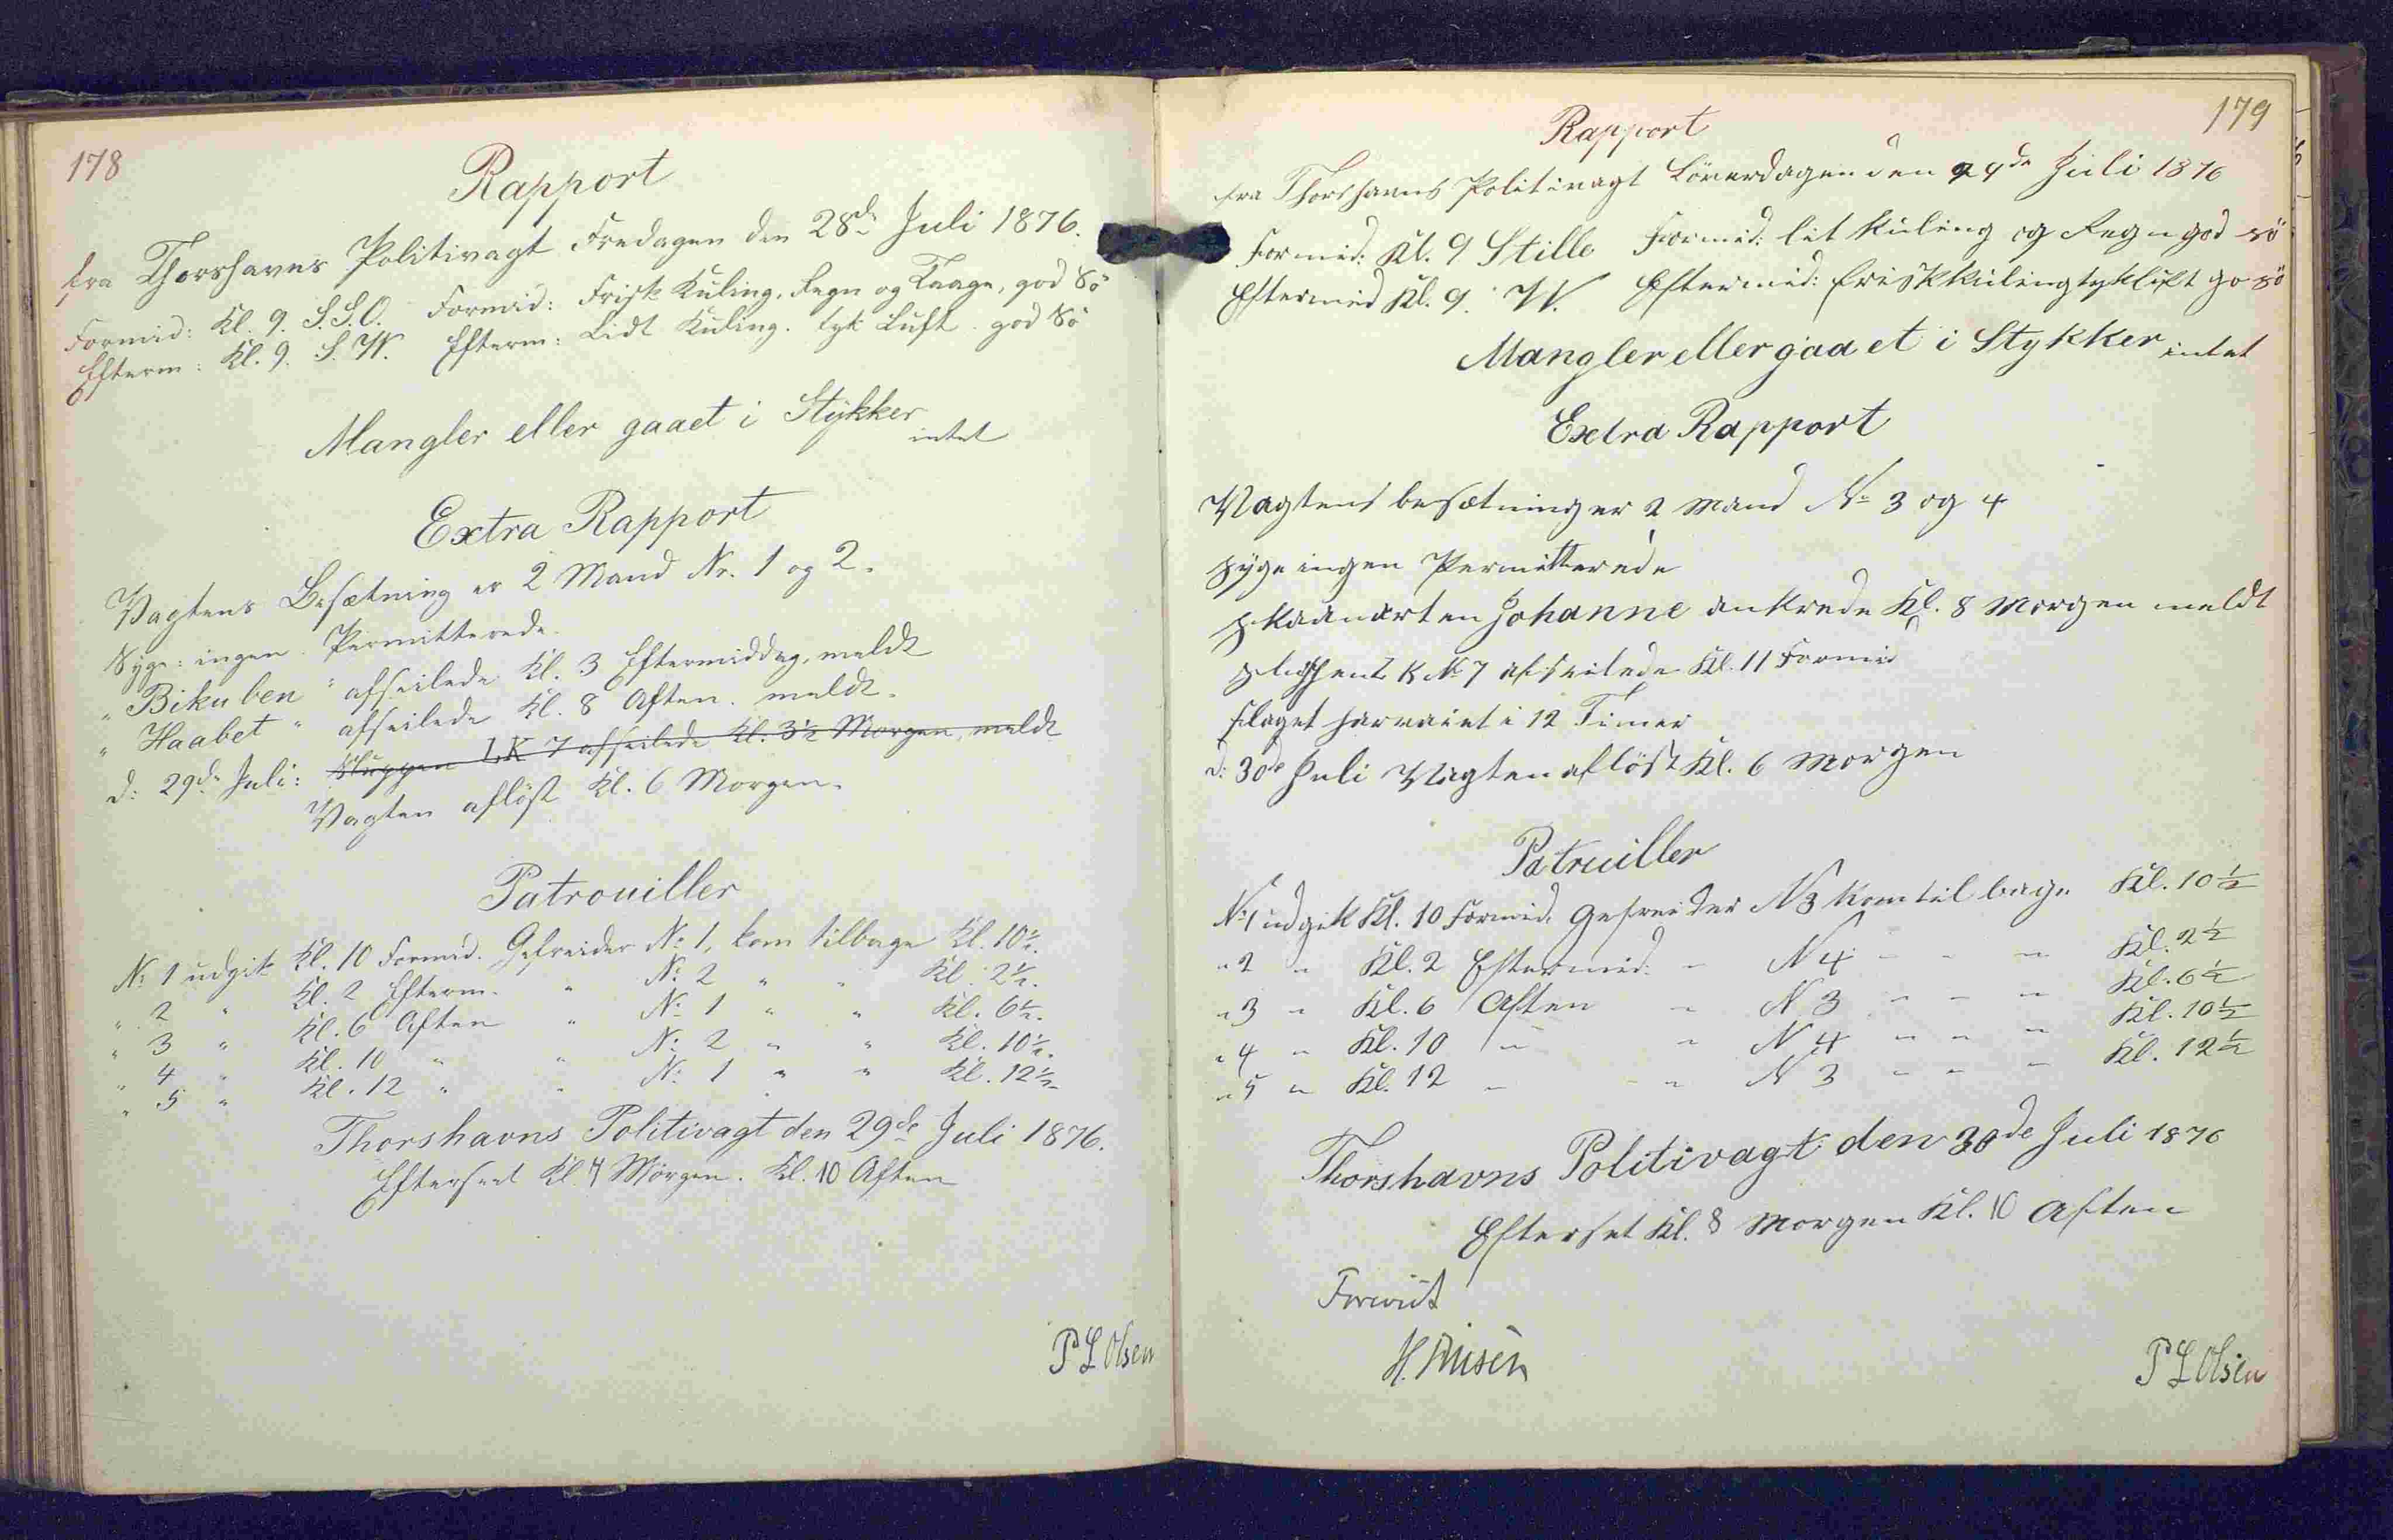 178
Rapport
fra Thorshavns Politivagt Fredagen den 28de Juli 1876.
Formid: Kl. 9. S.S.O. Formid: Frisk Kuling, Regn og Taage, god Sö
Efterm: Kl. 9. S.W. Efterm: Lidt Kuling. tyk Luft. god Sö
Mangler eller gaaet i Stykker
intet
Extra Rapport
Vagtens Besætning er 2 Mand Nr. 1 og 2.
Syge: ingen. Permitterede.
"Bikuben" afseilede Kl. 3 Eftermiddag, meldt
"Haabet" afseilede Kl. 8 Aften. meldt.
d: 29de Juli: Sluppen LK 7 afseilede Kl. 3½ Morgen, meldt
Vagten aflöst Kl. 6 Morgen.
Patrouiller
No 1 udgik Kl. 10 Formid. Gefreider No 1, kom tilbage Kl. 10½.
" 2 " Kl. 2 Efterm. " No 2 " " Kl. 2½.
" 3 " Kl. 6 Aften " No 1 " " Kl. 6½.
" 4 " Kl. 10 " " No 2 " " Kl. 10½.
" 5 " Kl. 12 " " No 1 " " Kl. 12½
Thorshavns Politivagt den 29de Juli 1876.
Efterseet Kl. 7 Morgen. Kl. 10 Aften
P L Olsen
179
Rapport
fra Thorshavns Politivagt Löverdagen den 29de Juli 1876
Formid: Kl. 9 Stille Formid: lit Kuling og Regn god sö
Eftermid Kl. 9. W. Eftermid: frisk Kuling tyk lift go sö
Mangler eller gaaet i Stykker intet
Extra Rapport
Vagtens besætning er 2 Mand No 3 og 4
syge ingen Permitterede
skaanerten Johanne ankrede Kl. 8 Morgen meldt
K No 7 afseilede Kl. 11 Formid
flaget harvaiet i 12 Timer
d: 30de Juli Vagten aflöst Kl. 6 Morgen
Patruiller
No 1 udgik Kl. 10 Formid. Gefreider N 3 kom tilbage Kl. 10½
" 2 " Kl. 2 Eftermid: " N 4 " " " Kl. 2½
" 3 " Kl. 6 Aften " N 3 " " " Kl. 6½
" 4 " Kl. 10 " " N 4 " " " Kl. 10½
" 5 " Kl. 12 " " N 3 " " " Kl. 12½
Thorshavns Politivagt den 30de Juli 1876
Efterset Kl. 8 Morgen Kl. 10 Aften
P L Olsen